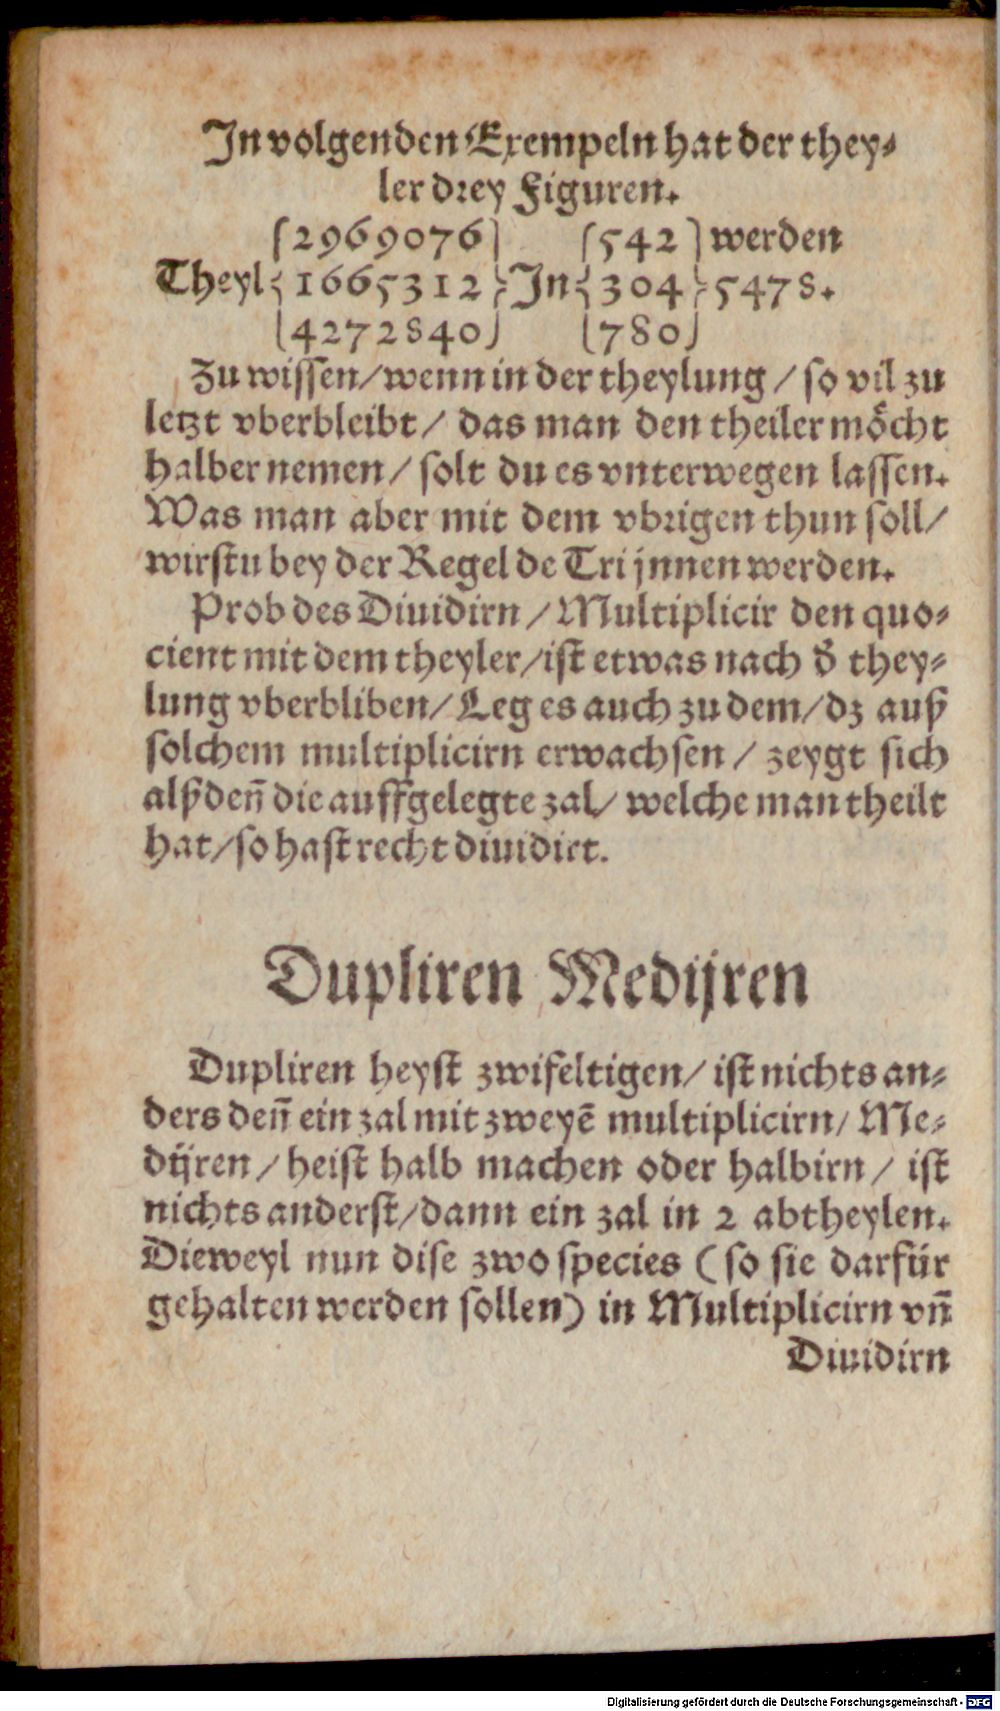 In volgenden Exempeln hat der they⸗
ler drey Figuren.
{2969076} {542} werden
Theyl {1665312} In {304} 5478.
{4272840} {780}
Zu wissen/ wenn in der theylung / so vil zu
letzt vberbleibt / das man den theiler möcht
halber nemen / solt du es vnterwegen lassen.
Was man aber mit dem vbrigen thun soll/
wirstu bey der Regel de Tri jnnen werden.
Prob des Diuidirn / Multiplicir den quo⸗
cient mit dem theyler/ ist etwas nach d̕ they⸗
lung vberbliben/ Leg es auch zu dem/ dz auß
solchem multiplicirn erwachsen / zeygt sich
alßdeñ die auffgelegte zal/ welche man theilt
hat/ so hast recht diuidirt.
Dupliren Medijren
Dupliren heyst zwifeltigen/ ist nichts an⸗
ders deñ ein zal mit zweyẽ multiplicirn/ Me⸗
dijren / heist halb machen oder halbirn / ist
nichts anderst/ dann ein zal in 2 abtheylen.
Dieweyl nun dise zwo species (so sie darfür
gehalten werden sollen) in Multiplicirn vñ
Diuidirn
Digitalisierung gefördert durch die Deutsche Forschungsgemeinschaft - DFG